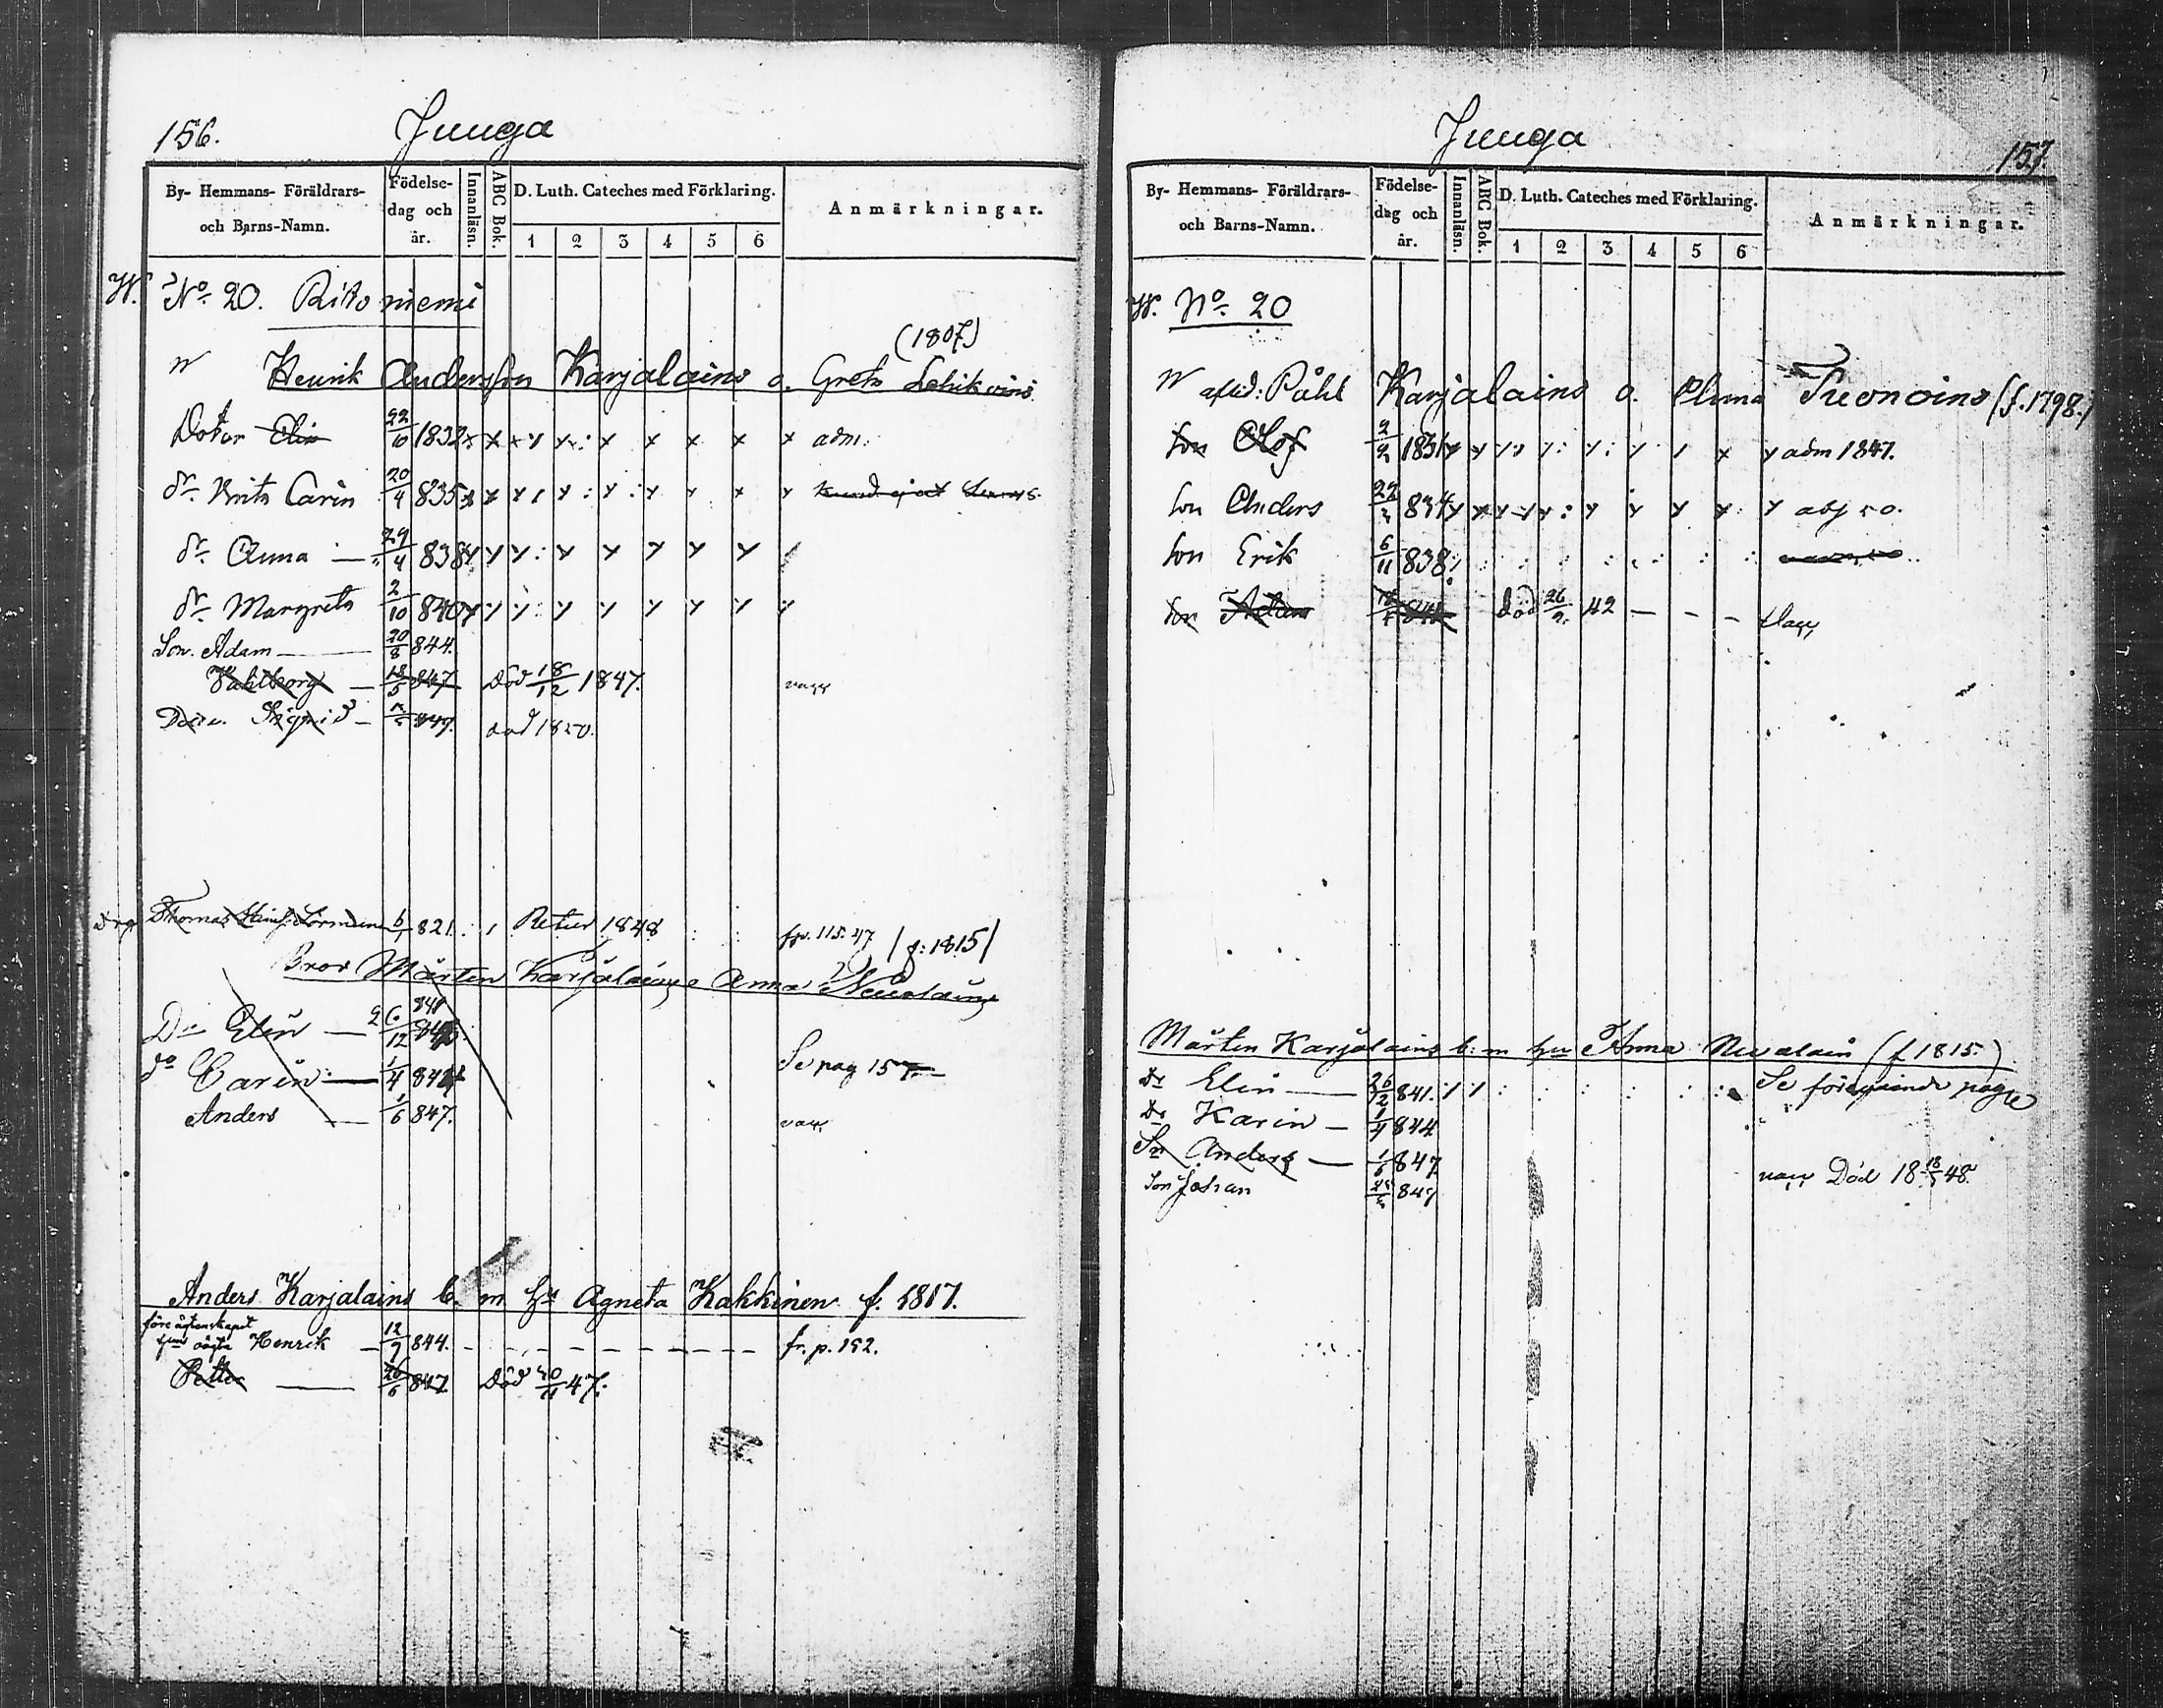 156.
Juuga
By- Hemmans- Föräldrars- och Barns-Namn.
Födelse-dag och år.
Innanläsn.
ABC Bok.
D. Luth. Cateches med Förklaring.
1 2 3 4 5 6
Anmärkningar.
W. No. 20. Ritoniemi
(1807)
Henrik Andersson Karjalains o. Greta
Dotor Elin 22/6 1832 x x x x x x x x adm:
dr. Brita Carin 20/4 835
dr. Anna — 29/4 838
dr. Margreta 2/10 840
Son. Adam — 20/8 844.
Wahlborg — 18/5 847 Död 18/12 1847.
Sigrid — 849. död 1850.
Thomas 821. Retur 1848 fr. 115. 47
/f: 1815/
Bror Mårten Karjalains o Anna
Dr Elin — 26/12 841
do Carin — 1/4 844 Se pag 157
Anders — 1/6 847.
Anders Karjalains b. m hu Agneta Kakkinen f. 1817.
före ägtenskapet
Henrik — 12/9 844. fr. p. 152.
Petter — 26/6 847 Död 20/11 47.
Juuga
157.
By- Hemmans- Föräldrars- och Barns-Namn.
Födelse-dag och år.
Innanläsn.
ABC Bok.
D. Luth. Cateches med Förklaring.
1 2 3 4 5 6
Anmärkningar.
W. No. 20
aflid: Påhl Karjalains o. Anna (f. 1798.)
Son Olof 2/2 1831 adm 1847.
Son Anders 834
Son Erik 6/11 838
Son Död 26/9 42 — — —
Mårten Karjalains b: m hu Anna Nevalain (f 1815.)
Dr Elin — 26/12 841. Se föregående page
Dr Karin — 1/4 844
Sn Anders — 1/6 847 Död 18 48.
Son Johan 849